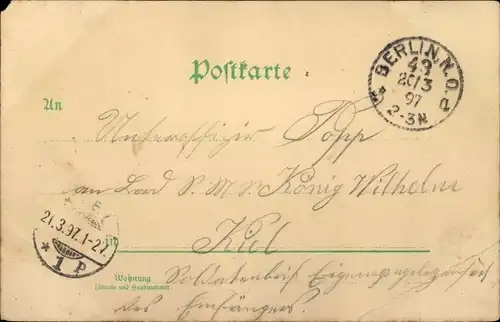 BERLIN. N.O.
49
20/3
97
2-3N
Postkarte
An
Unteroffizier Popp
an Bord S. M. S. König Wilhelm
21.3.97.1-2
* 1 P
in Kiel
Wohnung
(Straße und Hausnummer)
Soldatenbrief Eigene Angelegenheit
des Empfängers.